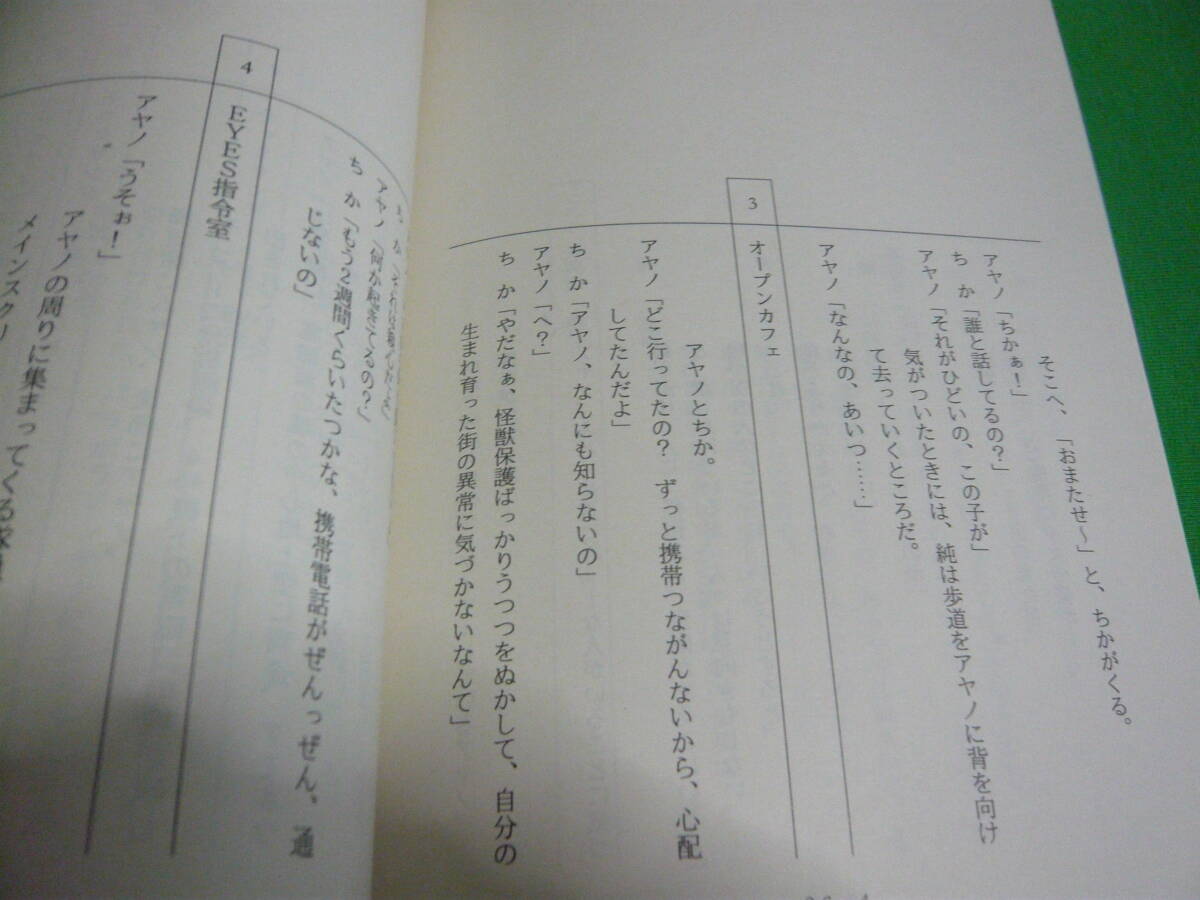 そこへ、「おまたせ～」と、ちかがくる。
アヤノ「ちかぁ！」
ち　か「誰と話してるの？」
アヤノ「それがひどいの、この子が」
気がついたときには、純は歩道をアヤノに背を向け
て去っていくところだ。
アヤノ「なんなの、あいつ……」
3　オープンカフェ
アヤノとちか。
アヤノ「どこ行ってたの？　ずっと携帯つながんないから、心配
してたんだよ」
ち　か「アヤノ、なんにも知らないの」
アヤノ「へ？」
ち　か「やだなぁ、怪獣保護ばっかりうつつをぬかして、自分の
生まれ育った街の異常に気づかないなんて」
アヤノ「何か起きてるの？」
ち　か「もう2週間くらいたつかな、携帯電話がぜんっぜん、通
じないの」
4　EYES指令室
アヤノ「うそぉ！」
アヤノの周りに集まってくる
メインスクリ